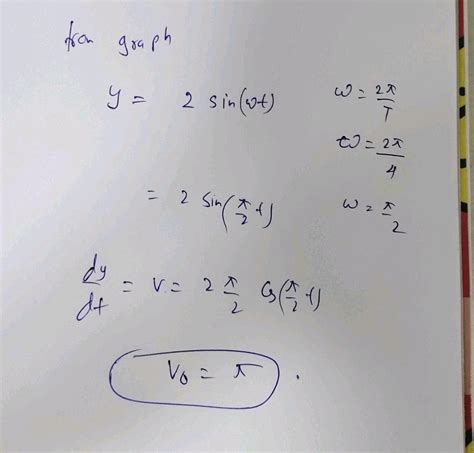 from graph
y = 2 sin(ωt) ω = 2π/T
ω = 2π/4
= 2 sin(π/2 t) ω = π/2
dy/dt = v = 2 π/2 Cos(π/2 t)
V₀ = π .